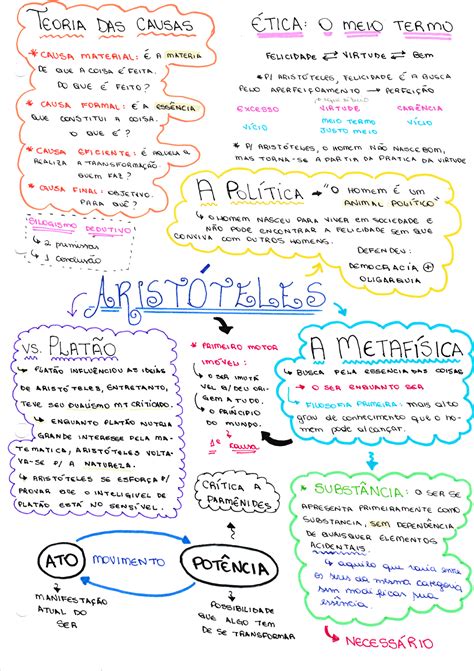 TEORIA DAS CAUSAS
* CAUSA MATERIAL: É A MATERIA
DE QUE A COISA É FEITA.
DO QUE É FEITO?
* CAUSA FORMAL: É A ESSÊNCIA
QUE CONSTITUI A COISA.
O QUE É?
* CAUSA EFICIENTE: É AQUELA Q
REALIZA A TRANSFORMAÇÃO.
QUEM FAZ?
* CAUSA FINAL: OBJETIVO.
PARA QUE?
SILOGISMO DEDUTIVO
↳ 2 premissas
↳ 1 conclusão
ÉTICA: O MEIO TERMO
FELICIDADE ⇄ VIRTUDE ⇄ BEM
* P/ ARISTÓTELES, FELICIDADE É A BUSCA
PELO APERFEIÇOAMENTO → PERFEIÇÃO
EXCESSO VIRTUDE CARÊNCIA
VÍCIO MEIO TERMO VÍCIO
JUSTO MEIO
* P/ ARISTÓTELES, O HOMEM NÃO NASCE BOM,
MAS TORNA-SE A PARTIR DA PRATICA DA VIRTUDE
A POLÍTICA → "O HOMEM É UM
ANIMAL POLÍTICO"
↳ O HOMEM NASCEU PARA VIVER EM SOCIEDADE E
NÃO PODE ENCONTRAR A FELICIDADE SEM QUE
CONVIVA COM OUTROS HOMENS.
DEFENDEU:
DEMOCRACIA +
OLIGARQUIA
ARISTÓTELES
VS. PLATÃO
↳ PLATÃO INFLUENCIOU AS IDEIAS
DE ARISTÓTELES, ENTRETANTO,
TEVE SEU DUALISMO MT CRITICADO.
↳ ENQUANTO PLATÃO NUTRIA
GRANDE INTERESSE PELA MA-
TEMATICA, ARISTÓTELES VOLTA-
VA-SE P/ A NATUREZA.
↳ ARISTÓTELES SE ESFORÇA P/
PROVAR QUE O INTELIGIVEL DE
PLATÃO ESTÁ NO SENSÍVEL.
* PRIMEIRO MOTOR
IMÓVEL:
↳ O SER IMUTÁ
VEL Q/ DEU ORIGEM
A TUDO.
↳ O PRINCÍPIO
DO MUNDO.
1ª causa
A METAFÍSICA
↳ BUSCA PELA ESSENCIA DAS COISAS
→ O SER ENQUANTO SER
↳ FILOSOFIA PRIMEIRA: mais alto
grau de conhecimento que o ho-
mem pode alcançar.
CRÍTICA A
PARMÊNIDES
* SUBSTÂNCIA: O SER SE
APRESENTA PRIMEIRAMENTE COMO
SUBSTANCIA, SEM DEPENDÊNCIA
DE QUAISQUER ELEMENTOS
ACIDENTAIS.
↳ aquilo que varia entre
os seus da mesma categoria,
sem modificar sua
essência.
NECESSÁRIO
ATO MOVIMENTO POTÊNCIA
MANIFESTAÇÃO
ATUAL DO
SER
POSSIBILIDADE
QUE ALGO TEM
DE SE TRANSFORMAR